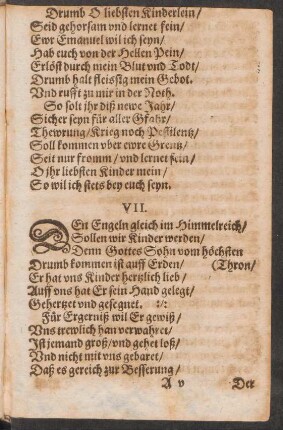 Drumb O liebsten Kinderlein/
Seid gehorsam vnd lernet fein/
Ewr Emanuel wil ich seyn/
Hab euch von der Hellen Pein/
Erlöst durch mein Blut vnd Todt/
Drumb halt fleissig mein Gebot.
Vnd rufft zu mir in der Noth.
So solt ihr diß newe Jahr/
Sicher seyn für aller Gfahr/
Thewrung/Krieg noch Pestilentz/
Soll kommen vber ewre Grentz/
Seit nur fromm/ vnd lernet fein/
O jhr liebsten Kinder mein/
So wil ich stets bey euch seyn.
VII.
DEn Engeln gleich im Himmelreich/
Sollen wir Kinder werden/
Denn Gottes Sohn vom höchsten
Drumb kommen ist auff Erden/ (Thron/
Er hat vns Kinder hertzlich lieb/
Auff vns hat Er sein Hand gelegt/
Gehertzet vnd gesegnet. :/:
Für Ergerniß wil Er gewiß/
Vns trewlich han verwahret/
Ist jemand groß/vnd gehet loß/
Vnd nicht mit vns gebaret/
Daß es gereich zur Besserung/
A v Der